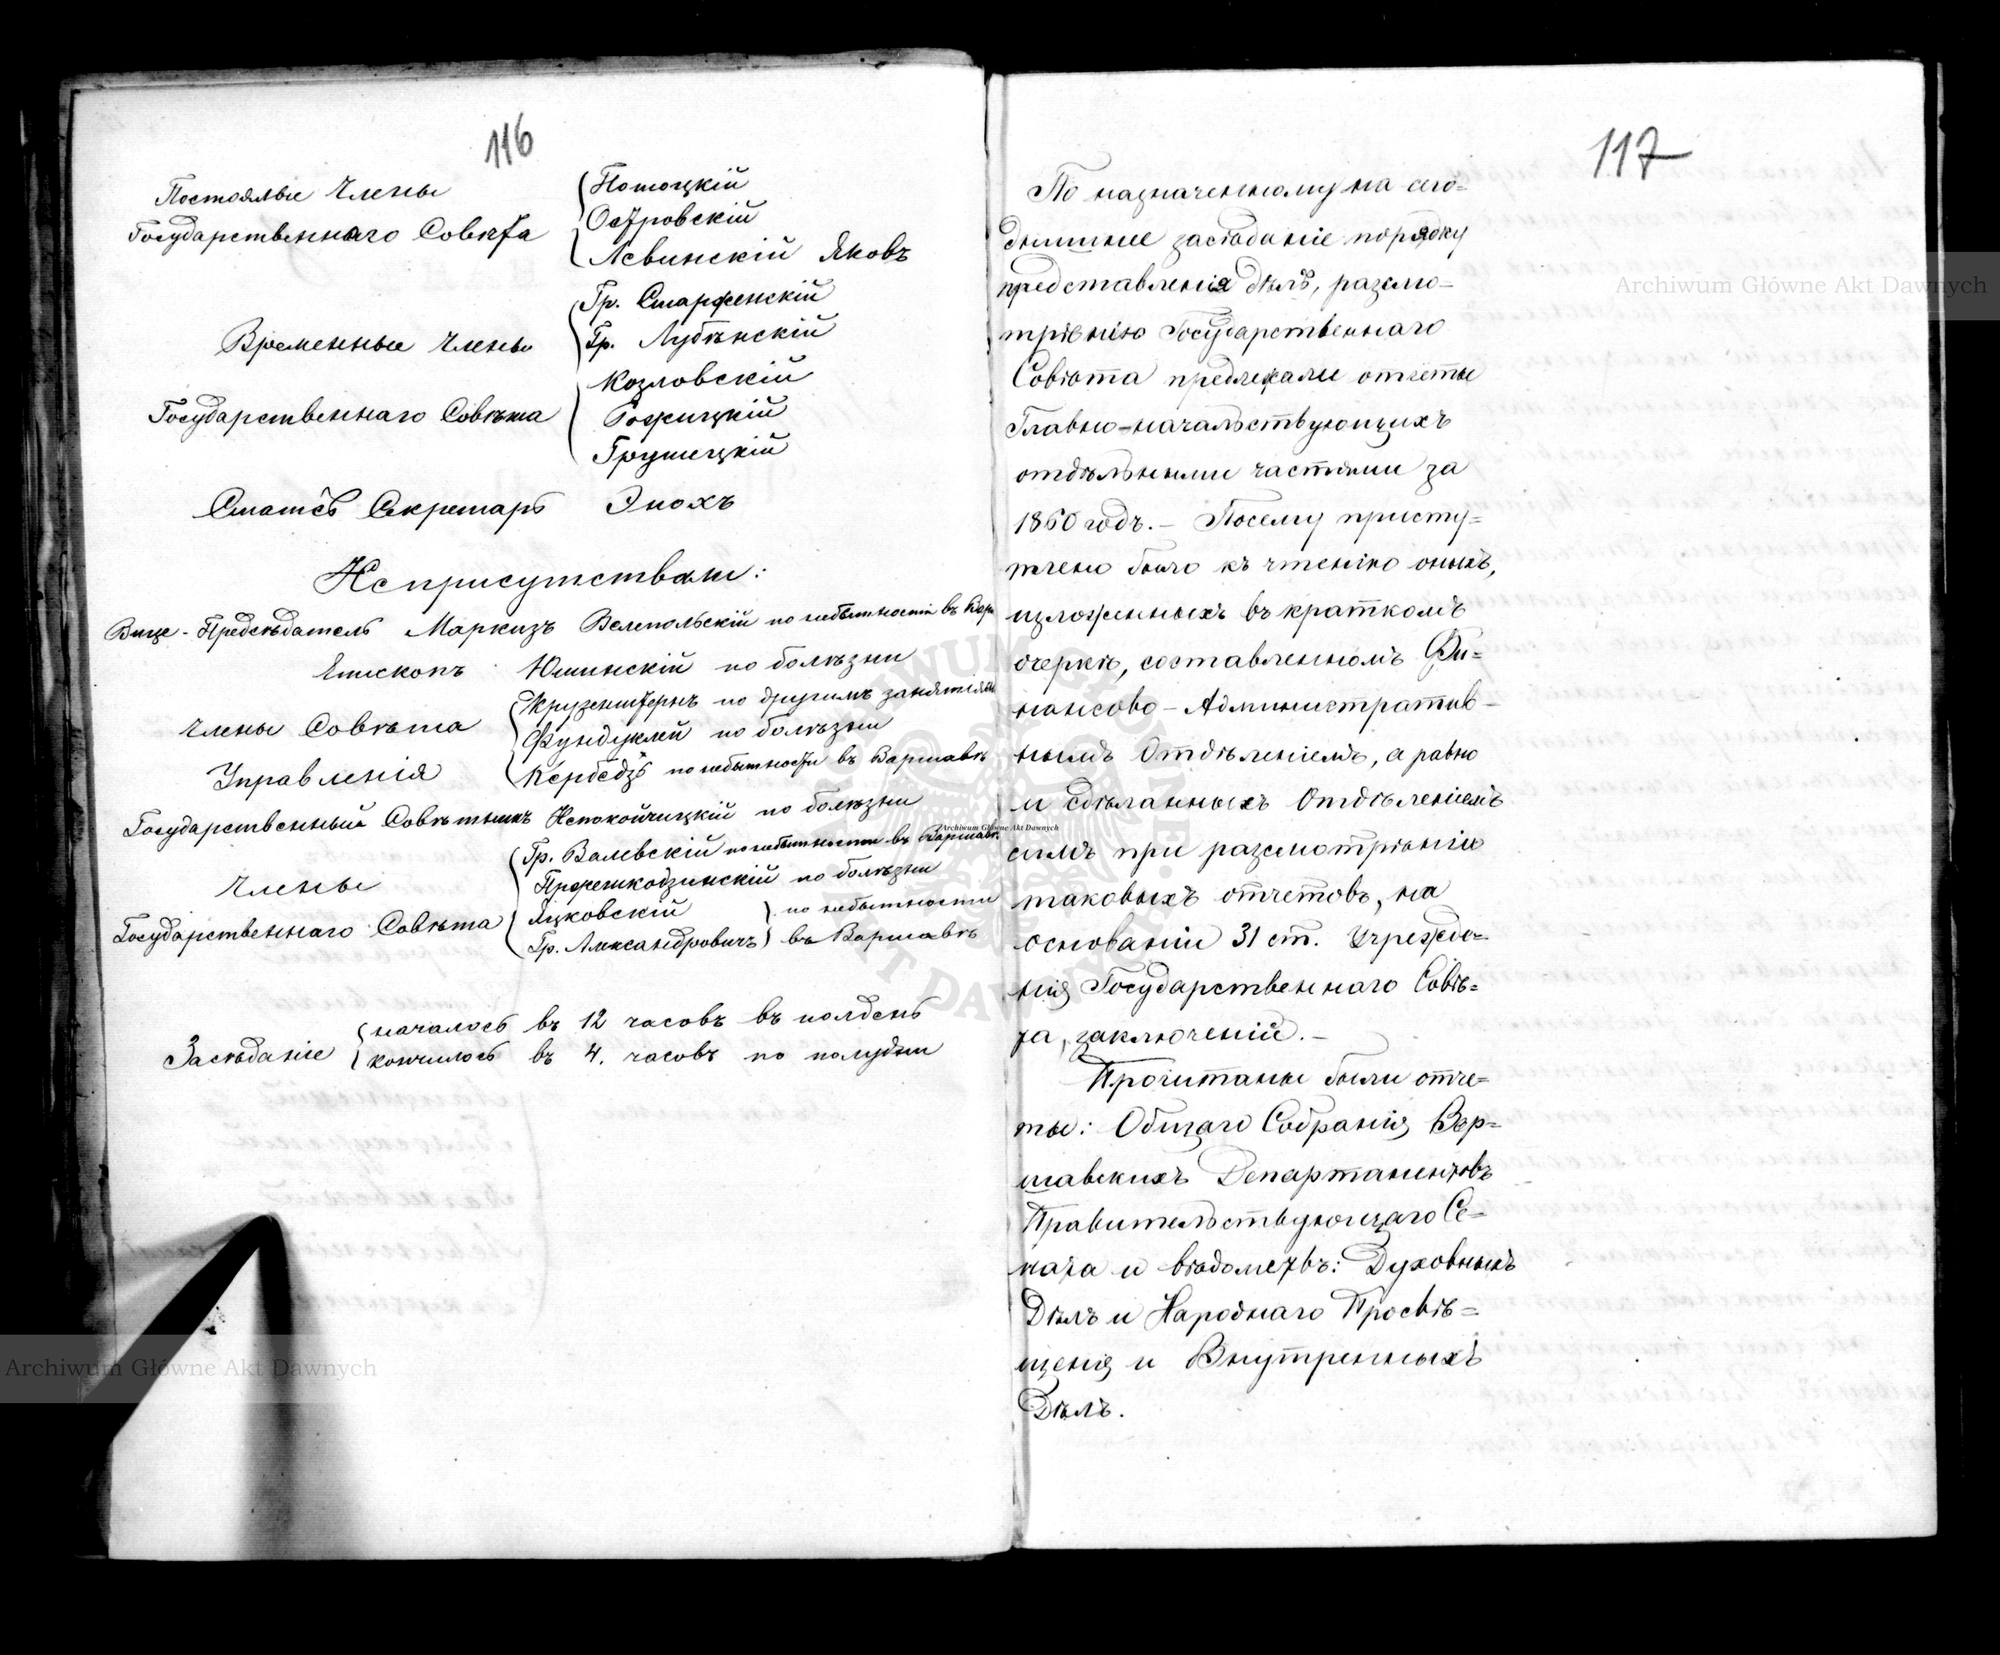 116
Постоялые Члены
Государственнаго Совѣта
Потоцкій
Островскій
Левинскій Яковъ
Временные Члены
Государственнаго Совѣта
Гр. Старженскій
Гр. Лубѣнскій
Козловскій
Рожицкій
Грушецкій
Статсъ Секретарь Энохъ
Неприсутствали:
Вице-Предсѣдатель Маркизъ Велепольскій по небытности въ Вар
Епископъ Юшинскій по болѣзни
Члены Совѣта
Управленія
Крузенштернъ по другимъ занятіямъ
Фундуклей по болѣзни
Кербедзъ по небытности въ Варшавѣ
Государственный Совѣтникъ Непокойчицкій по болѣзни
Члены
Государственнаго Совѣта
Гр. Валевскій по небытности въ Варшавѣ
по болѣзни
Яцковскій
Гр. Александровичъ
по небытности
въ Варшавѣ
Засѣданіе
началось въ 12 часовъ въ полдень
кончилось въ 4. часовъ по полудни
117
По назначенному на сего=
днишнее засѣданіе порядку
представленія дѣлъ, разсмо-
трѣнію Государственнаго
Совѣта предлежали отчеты
Главно-начальствующихъ
отдѣльными частями за
1860 годъ. - Посему присту=
плено было къ чтенію оныхъ,
изложенныхъ въ краткомъ
очеркѣ, составленномъ Фи=
нансово-Административ-
нымъ Отдѣленіемъ, а равно
и сдѣланныхъ Отдѣленіемъ
симъ при разсмотрѣніи
таковыхъ отчетовъ, на
основаніи 31 ст. Учрежде=
нія Государственнаго Совѣ=
та, заключеній. -
Прочитаны были отче=
ты: Общаго Собранія Вар=
шавскихъ Департаментовъ
Правительствующаго Се=
ната и вѣдомствъ: Духовныхъ
Дѣлъ и Народнаго Просвѣ=
щенія и Внутреннихъ
Дѣлъ.
Archiwum Główne Akt Dawnych
Archiwum Główne Akt Dawnych
Archiwum Główne Akt Dawnych